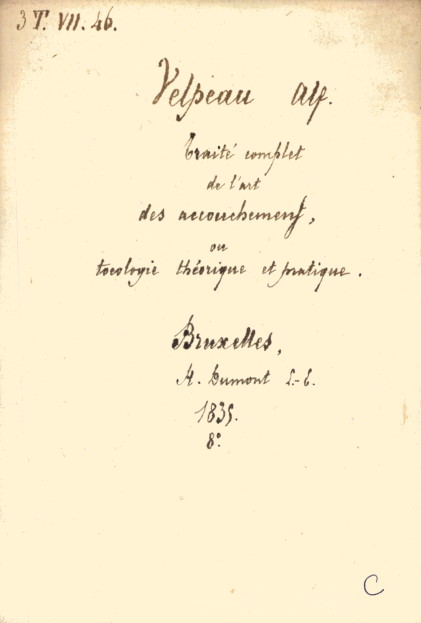 3 T. VII. 46.
Velpeau Alf.
Traité complet
de l'art
des accouchemens,
ou
tocologie théorique et pratique.
Bruxelles,
H. Dumont L.-E.
1835.
8°.
C